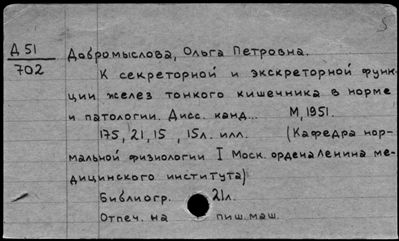 Д 51
702
Добромыслова, Ольга Петровна.
К секреторной и экскреторной функ-
ции желез тонкого кишечника в норме
и патологии. Дисс. канд... М, 1951.
175, 21, 15, 15л. илл. (Кафедра нор-
мальной физиологии I Моск. ордена Ленина ме-
дицинского института)
Библиогр. 21л.
Отпеч. на пиш. маш.